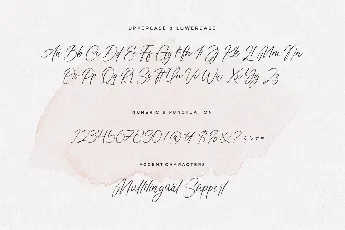 UPPERCASE & LOWERCASE
Aa Bb Cc Dd Ee Ff Gg Hh Ii Jj Kk Ll Mm Nn
Oo Pp Qq Rr Ss Tt Uu Vv Ww Xx Yy Zz
NUMERIC & PUNCTUATION
1234567890!@#$%&?
ACCENT CHARACTERS
Multilingual Support